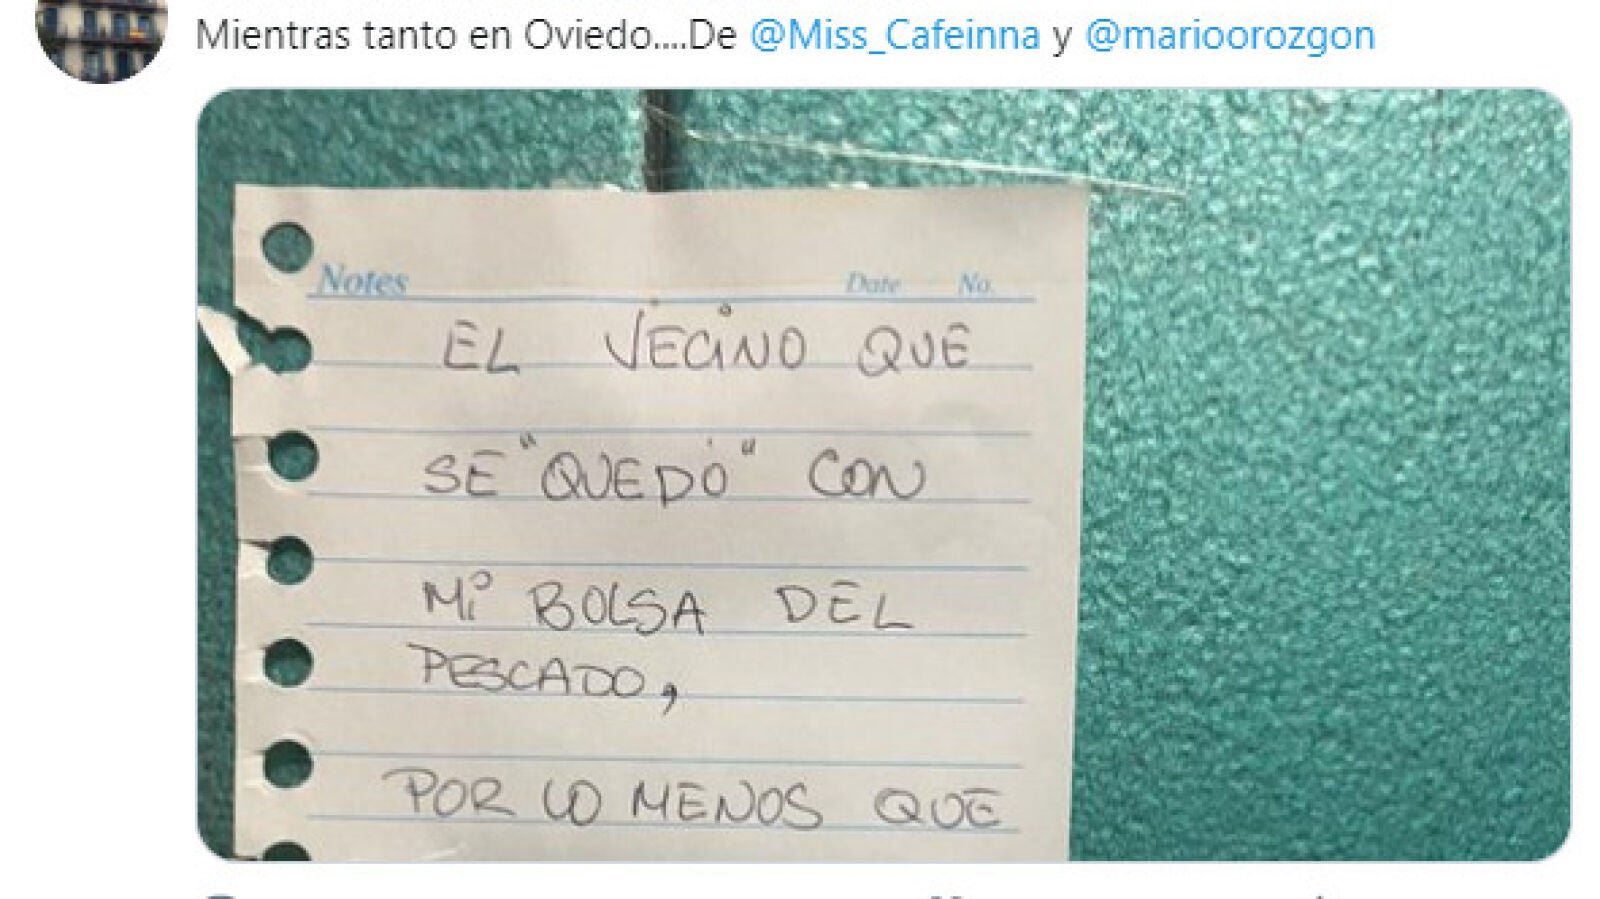 Mientras tanto en Oviedo....De @Miss_Cafeinna y @marioorozgon
Notes Date No.
EL VECINO QUE
SE "QUEDÓ" CON
Mi BOLSA DEL
PESCADO,
POR LO MENOS QUE